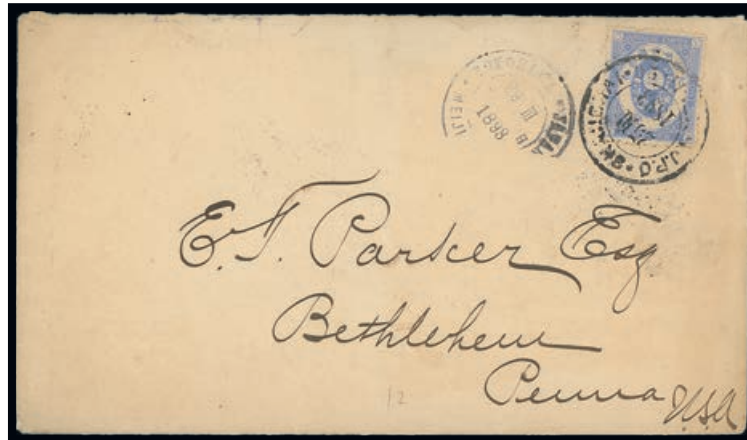 YOKOHAMA
JAPAN
MEIJI
1898
J.P.O.
E. T. Parker Esq
Bethlehem
Penna
U.S.A
12